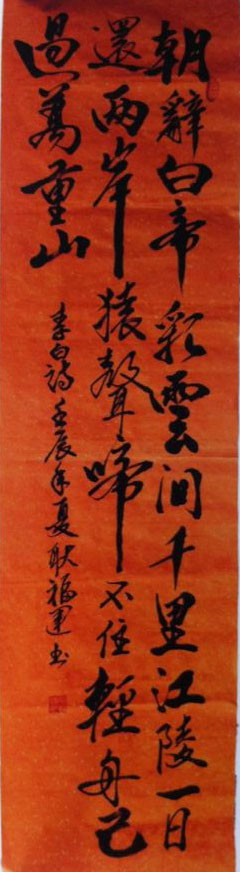 朝辭白帝彩雲间千里江陵一日
還兩岸猿聲啼不住輕舟已
過萬重山
李白詩壬辰年夏耿福運书